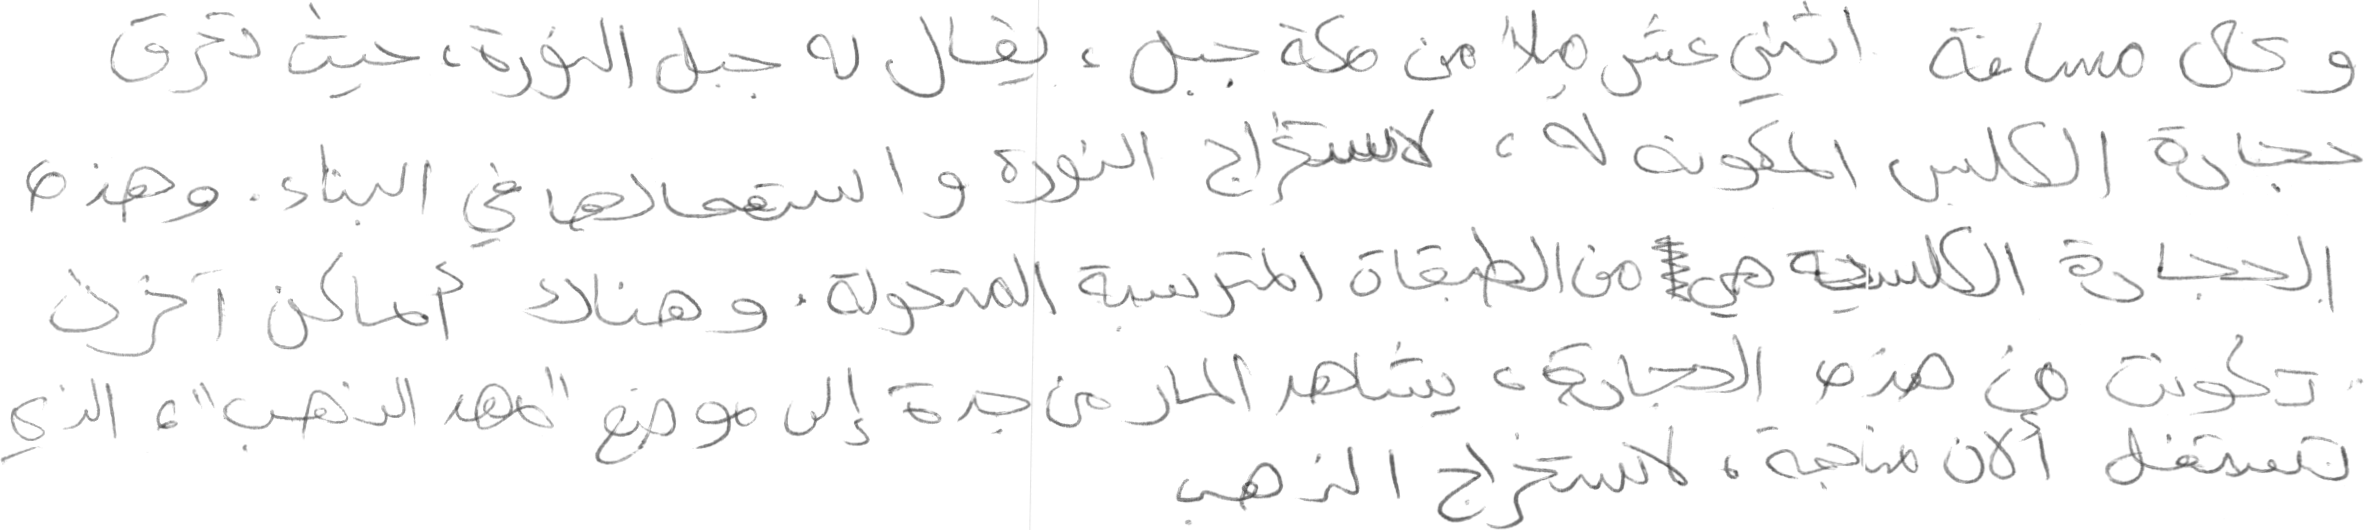 وعلى مسافة اثني عشر ميلا من مكة جبل، يقال له جبل النورة، حيث تحرق
حجارة الكلس المكونه له، لاستخراج النورة واستعمالها في البناء. وهذه
الحجارة الكلسيه هي من الطبقات المترسبة المتحولة. وهناك أماكن أخرى
تكونت من هذه الحجارة، يشاهد المار من جدة إلى موضع "مهد الذهب"، الذي
تستغل ألان مناجمة، لاستخراج الذهب